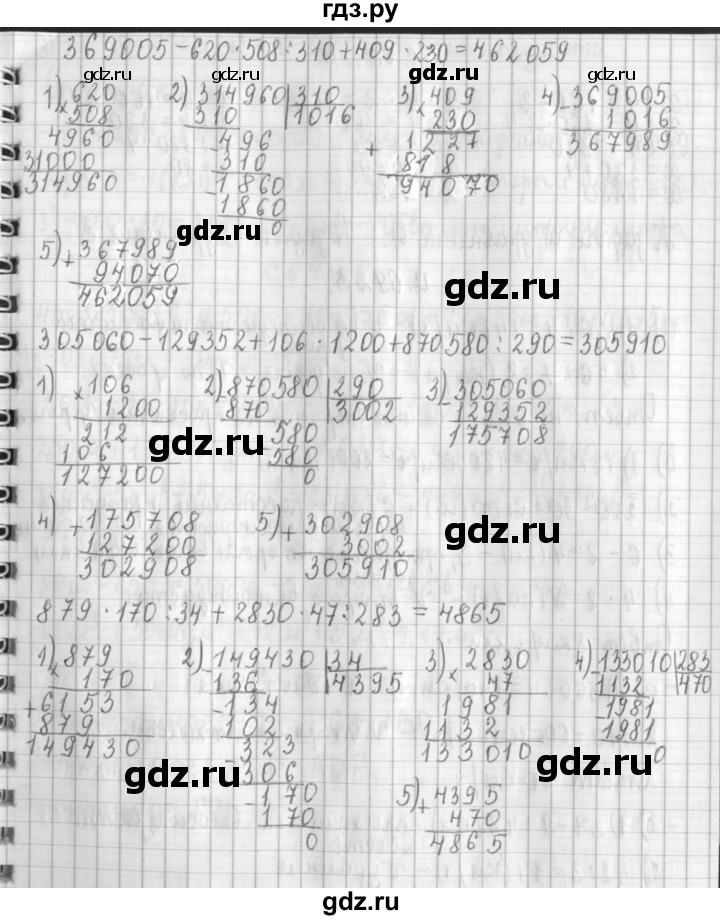 гдз.ру
369005-620·508:310+409·230=462059
gdz.ru gdz.ru gdz.ru gdz.ru
1) 620 2) 314960 310 3) 409 4) 369005
× 508 310 1016 × 230 - 1016
4960 496 + 1227 367989
31000 310 818
314960 - 1860 94070
1860
0
gdz.ru
5) + 367989
94070
462059
gdz.ru
gdz.ru
305060-129352+106·1200+870580:290=305910
1) × 106 2) 870580 290 3) 305060
1200 870 3002 - 129352
212 580 175708
106 - 580
127200 0
gdz.ru
gdz.ru
4) + 175708 5) + 302908
127200 3002
302908 305910
gdz.ru
879·170:34+2830·47:283=4865
1) 879 2) 149430 34 3) 2830 4) 133010 283
× 170 136 4395 × 47 1132 470
+ 6153 - 134 1981 - 1981
879 102 1132 1981
149430 - 323 133010 0
306
- 170
170
0
gdz.ru
gdz.ru
5) + 4395
470
4865
gdz.ru
gdz.ru